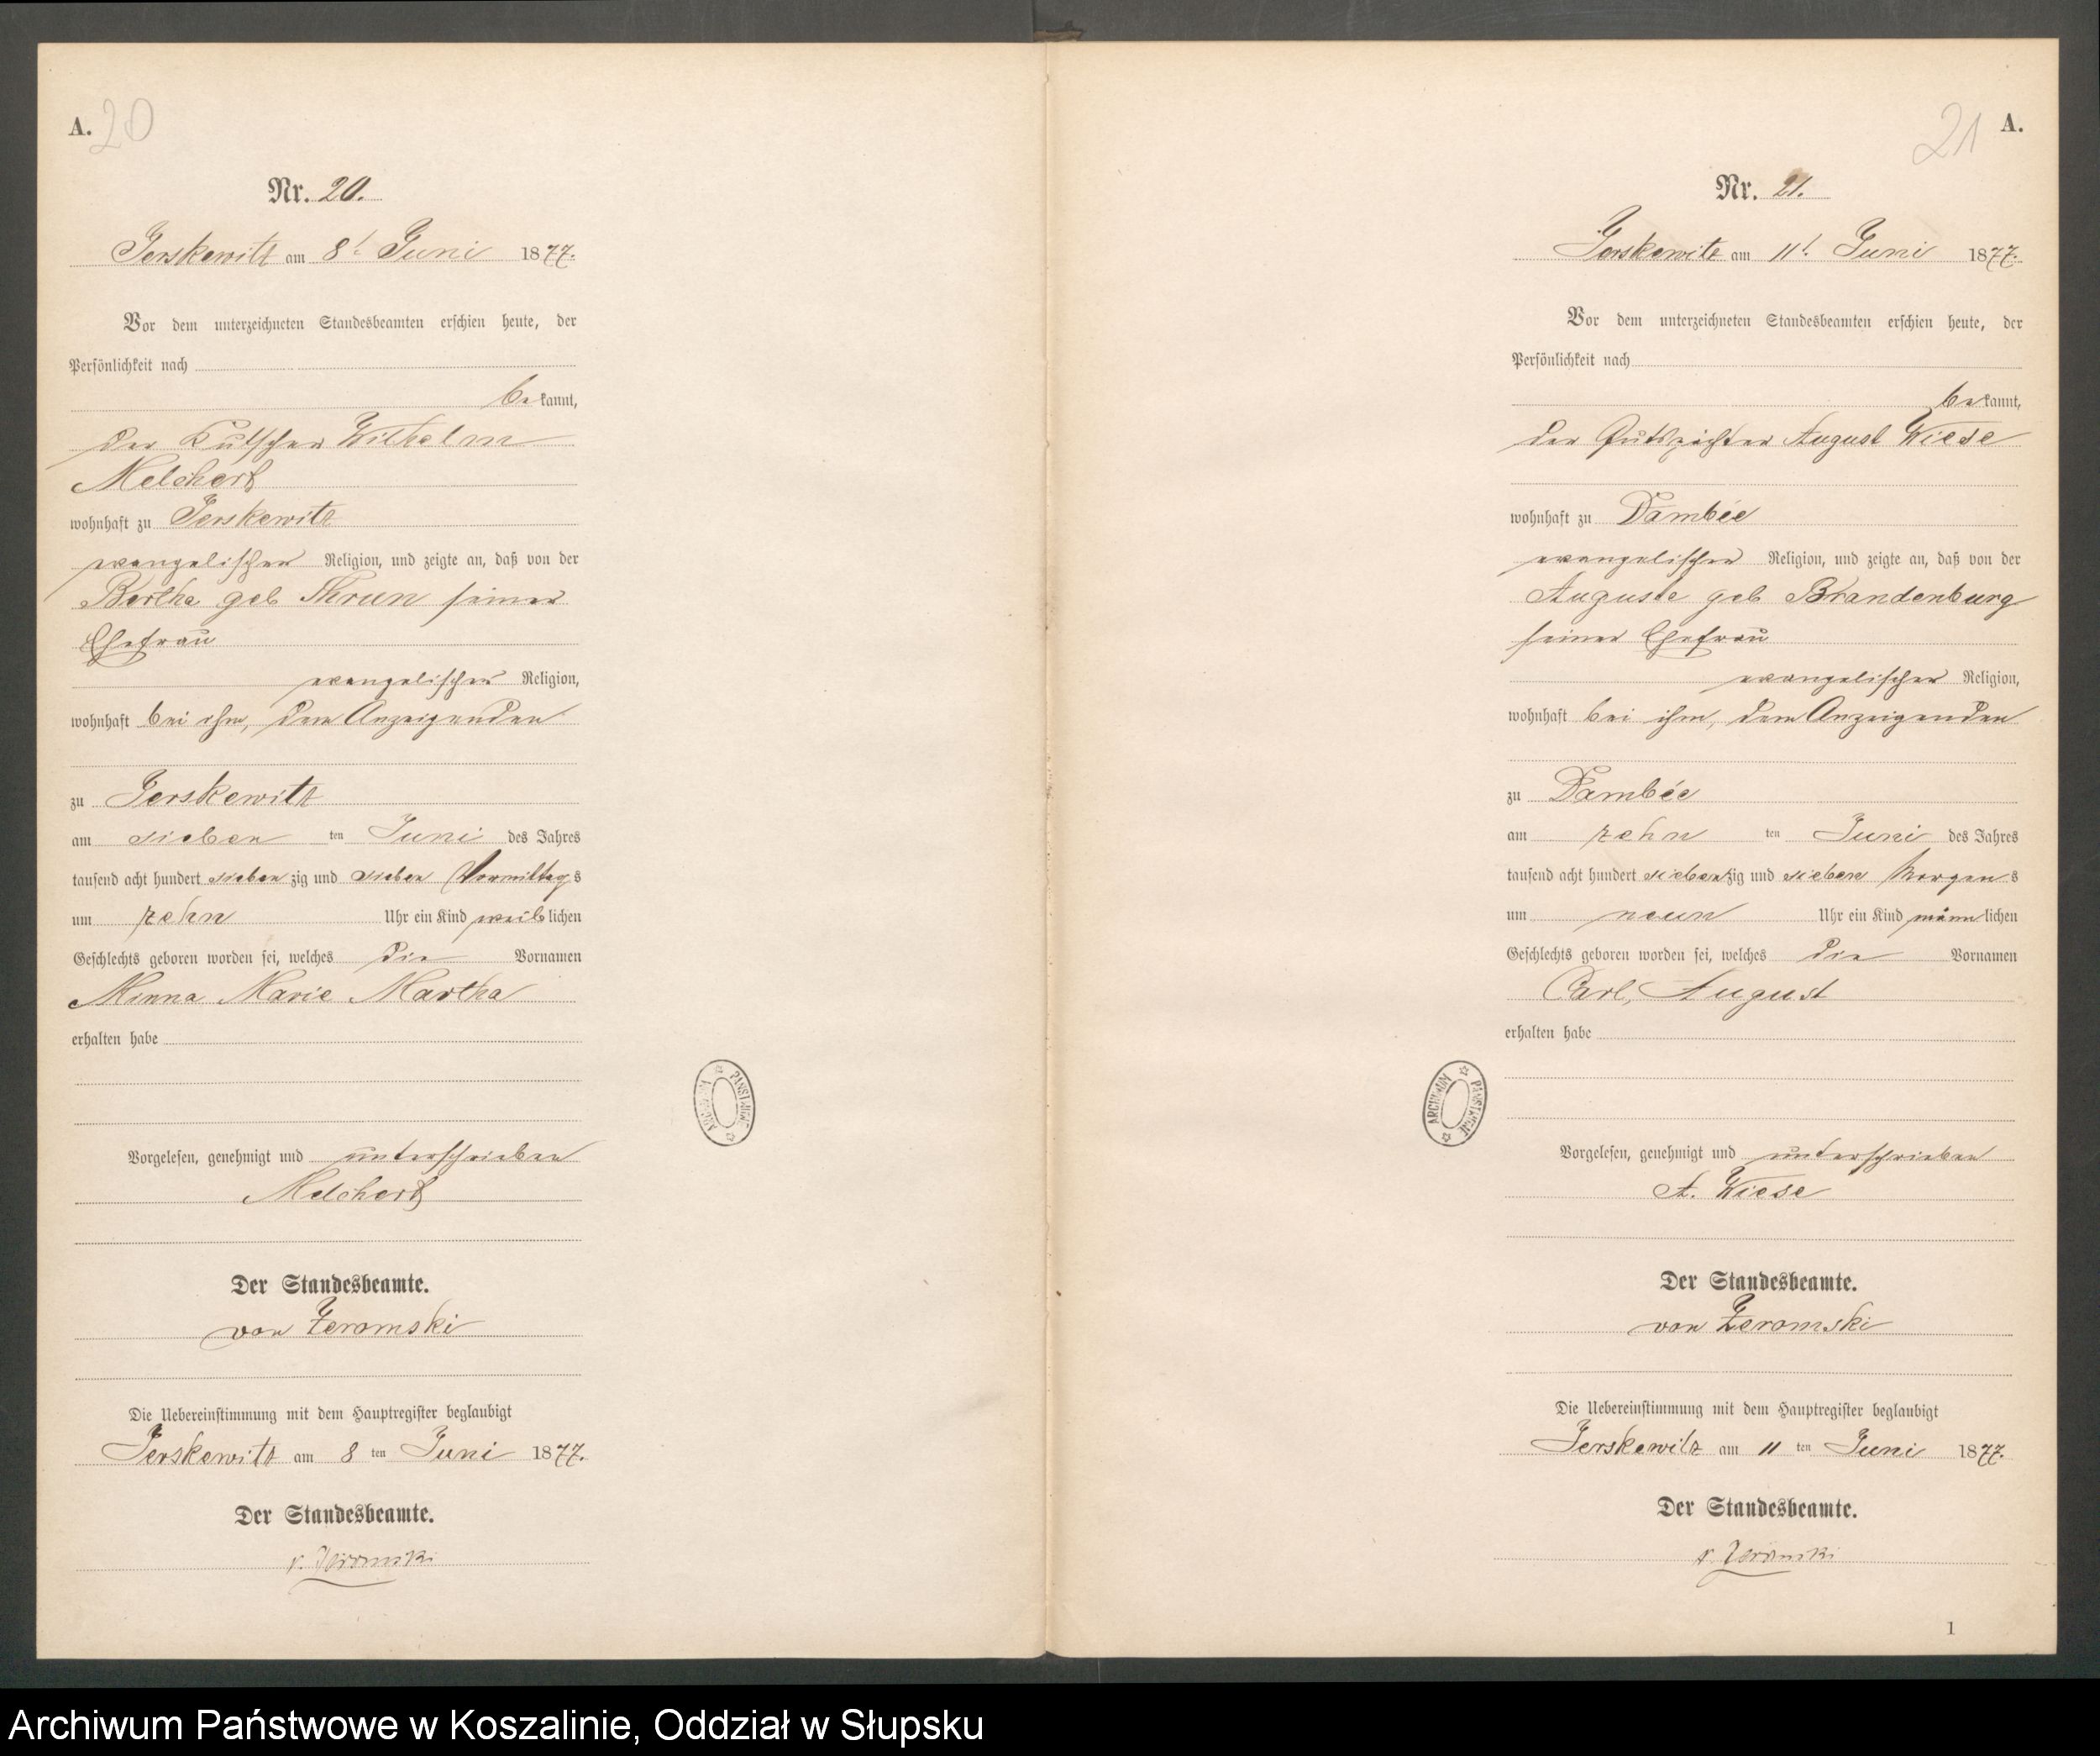 A. 20
Nr. 20.
Jerskewitz am 8t Juni 1877.
Vor dem unterzeichneten Standesbeamten erschien heute, der
Persönlichkeit nach
bekannt,
der Kutscher Wilhelm
Melchert
wohnhaft zu Jerskewitz
evangelischer Religion, und zeigte an, daß von der
Bertha geb seiner
Ehefrau
evangelischer Religion,
wohnhaft bei ihm, dem Anzeigenden
zu Jerskewitz
am sieben ten Juni des Jahres
tausend acht hundert siebenzig und sieben Vormittags
um zehn Uhr ein Kind weiblichen
Geschlechts geboren worden sei, welches die Vornamen
Minna Marie Martha
erhalten habe
Vorgelesen, genehmigt und unterschrieben
Melchert
Der Standesbeamte.
von Zeromski
Die Uebereinstimmung mit dem Hauptregister beglaubigt
Jerskewitz am 8 ten Juni 1877.
Der Standesbeamte.
v. Zeromski
ARCHIWUM PAŃSTWOWE
21 A.
Nr. 21.
Jerskewitz am 11t Juni 1877.
Vor dem unterzeichneten Standesbeamten erschien heute, der
Persönlichkeit nach
bekannt,
der Gutspächter August Wiese
wohnhaft zu Dambée
evangelischer Religion, und zeigte an, daß von der
Auguste geb Brandenburg
seiner Ehefrau
evangelischer Religion,
wohnhaft bei ihm, dem Anzeigenden
zu Dambée
am zehn ten Juni des Jahres
tausend acht hundert siebenzig und sieben Morgens
um neun Uhr ein Kind männlichen
Geschlechts geboren worden sei, welches die Vornamen
Carl, August
erhalten habe
Vorgelesen, genehmigt und unterschrieben
A. Wiese
Der Standesbeamte.
von Zeromski
Die Uebereinstimmung mit dem Hauptregister beglaubigt
Jerskewitz am 11 ten Juni 1877.
Der Standesbeamte.
v. Zeromski
1
ARCHIWUM PAŃSTWOWE
Archiwum Państwowe w Koszalinie, Oddział w Słupsku